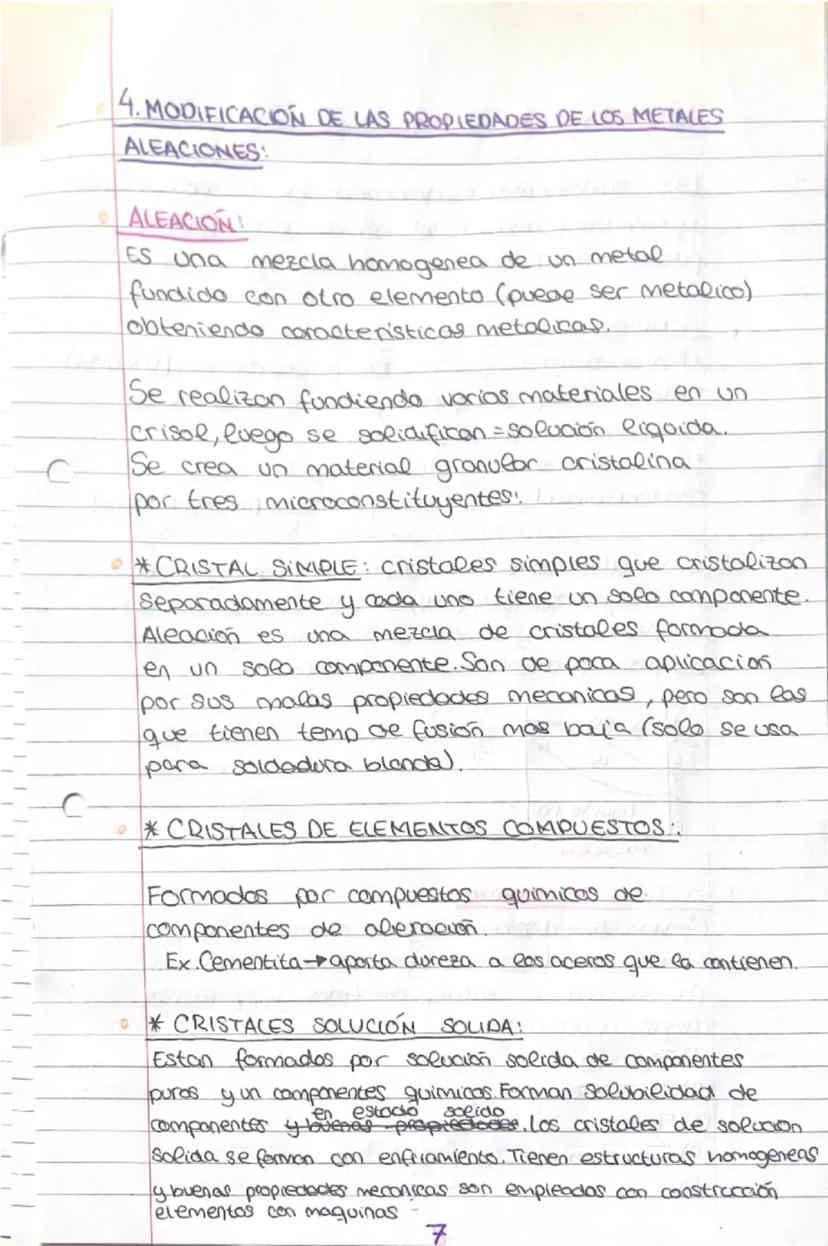 4. MODIFICACIÓN DE LAS PROPIEDADES DE LOS METALES
ALEACIONES:
ALEACIÓN:
ES una mezcla homogenea de un metal
fundido con otro elemento (puede ser metalico)
obteniendo caracteristicas metalicas.
Se realizan fundiendo varios materiales en un
crisol, luego se solidifican = solución liquida.
Se crea un material granular cristalina
por tres microconstituyentes:
* CRISTAL SIMPLE: cristales simples que cristalizan
separadamente y cada uno tiene un solo componente.
Aleación es una mezcla de cristales formada
en un solo componente. Son de poca aplicación
por sus malas propiedades mecanicas, pero son las
que tienen temp de fusión mas baja (solo se usa
para soldadura blanda).
* CRISTALES DE ELEMENTOS COMPUESTOS:.
Formados por compuestos quimicos de
componentes de
Ex. Cementita → aporta dureza a los aceros que la contienen.
* CRISTALES SOLUCIÓN SOLIDA:
Estan formados por solución solida de componentes
puros y un componentes quimicos. Forman solubilidad de
en estado solido
componentes y buenas propiedades. Los cristales de solucion
solida se forman con enfriamiento. Tienen estructuras homogeneas
y buenas propiedades mecanicas son empleados con construcción
elementos con maquinas
7